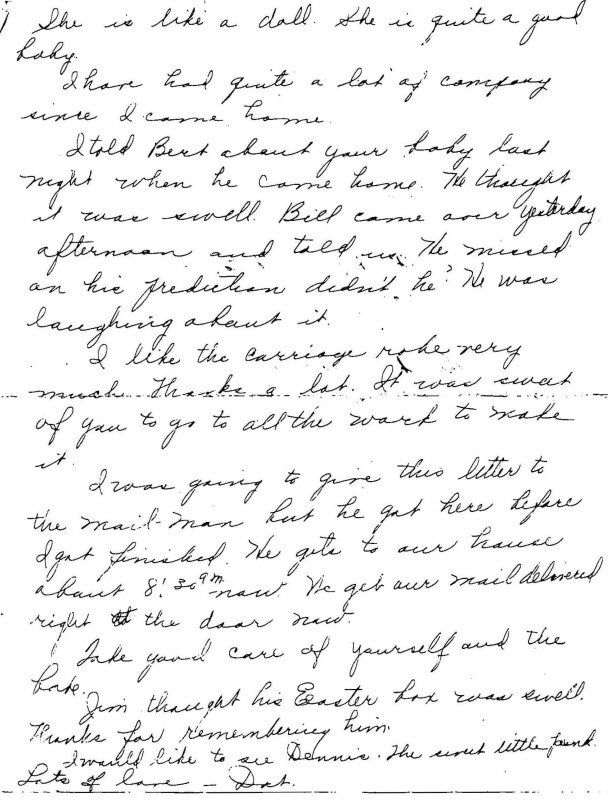 She is like a doll. She is quite a good
baby.
I have had quite a lot of company
since I came home.
I told Bert about your baby last
night when he came home. He thought
it was swell. Bill came over yesterday
afternoon and told us. He missed
on his prediction didn't he? He was
laughing about it.
I like the carriage robe very
much. Thanks a lot. It was sweet
of you to go to all the work to make
it.
I was going to give this letter to
the mail-man but he got here before
I got finished. He gets to our house
about 8:30 am now. We get our mail delivered
right to the door now.
Take good care of yourself and the
babe.
Jim thought his Easter box was swell.
Thanks for remembering him.
I would like to see Dennis. The sweet little
Lots of love - Dot.